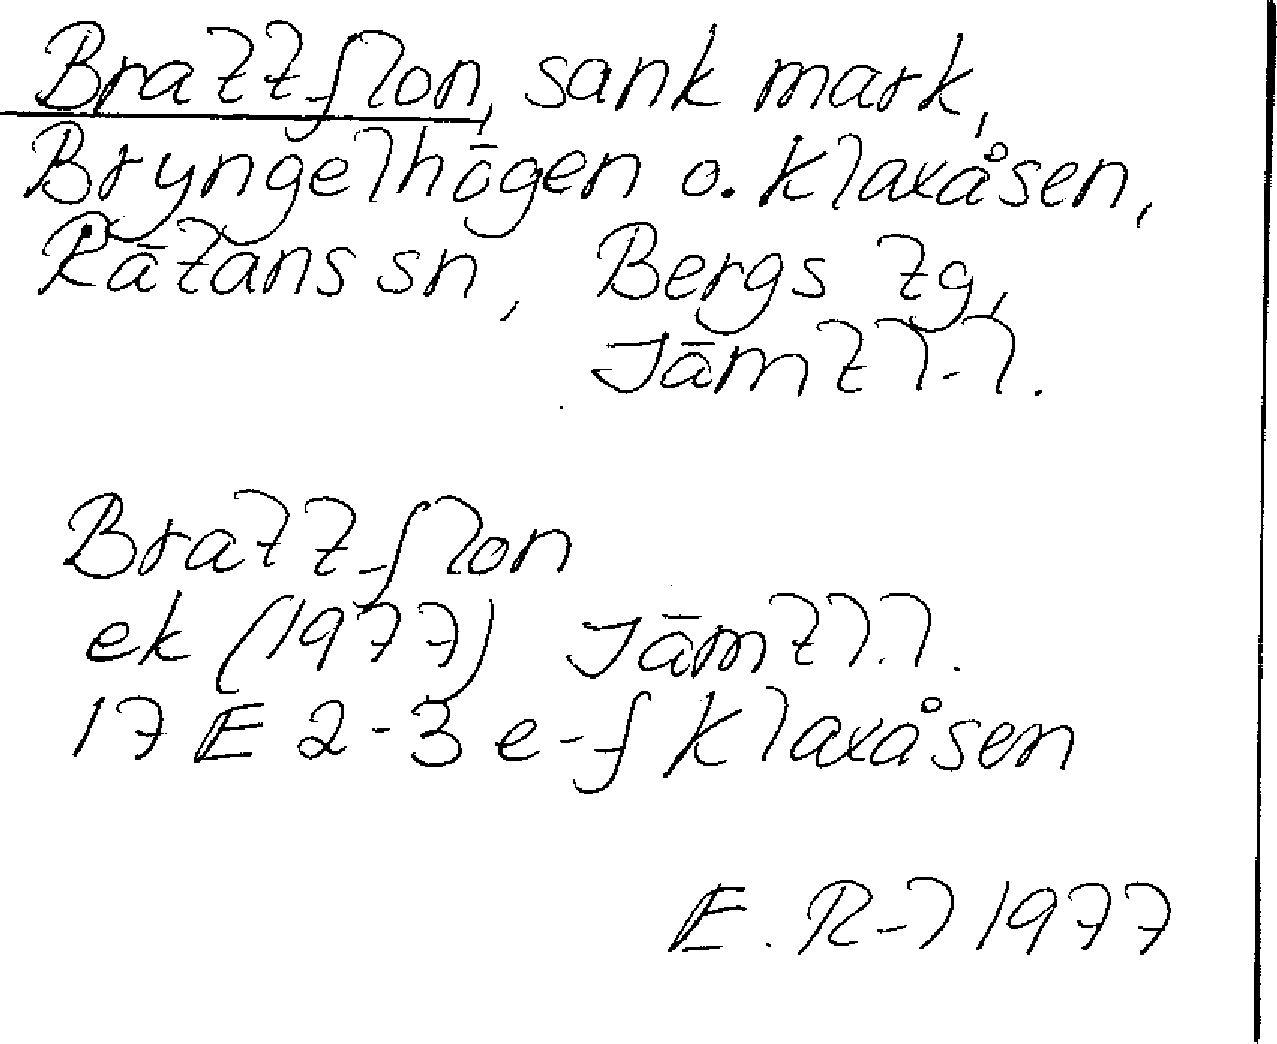 Brattflon, sank mark,
Bryngelhögen o. Klaxåsen,
Rätans sn, Bergs tg,
Jämtl.l.
Brattflon
ek (1977) Jämtl.l.
17 E 2-3 e-f Klaxåsen
E. R-l 1977